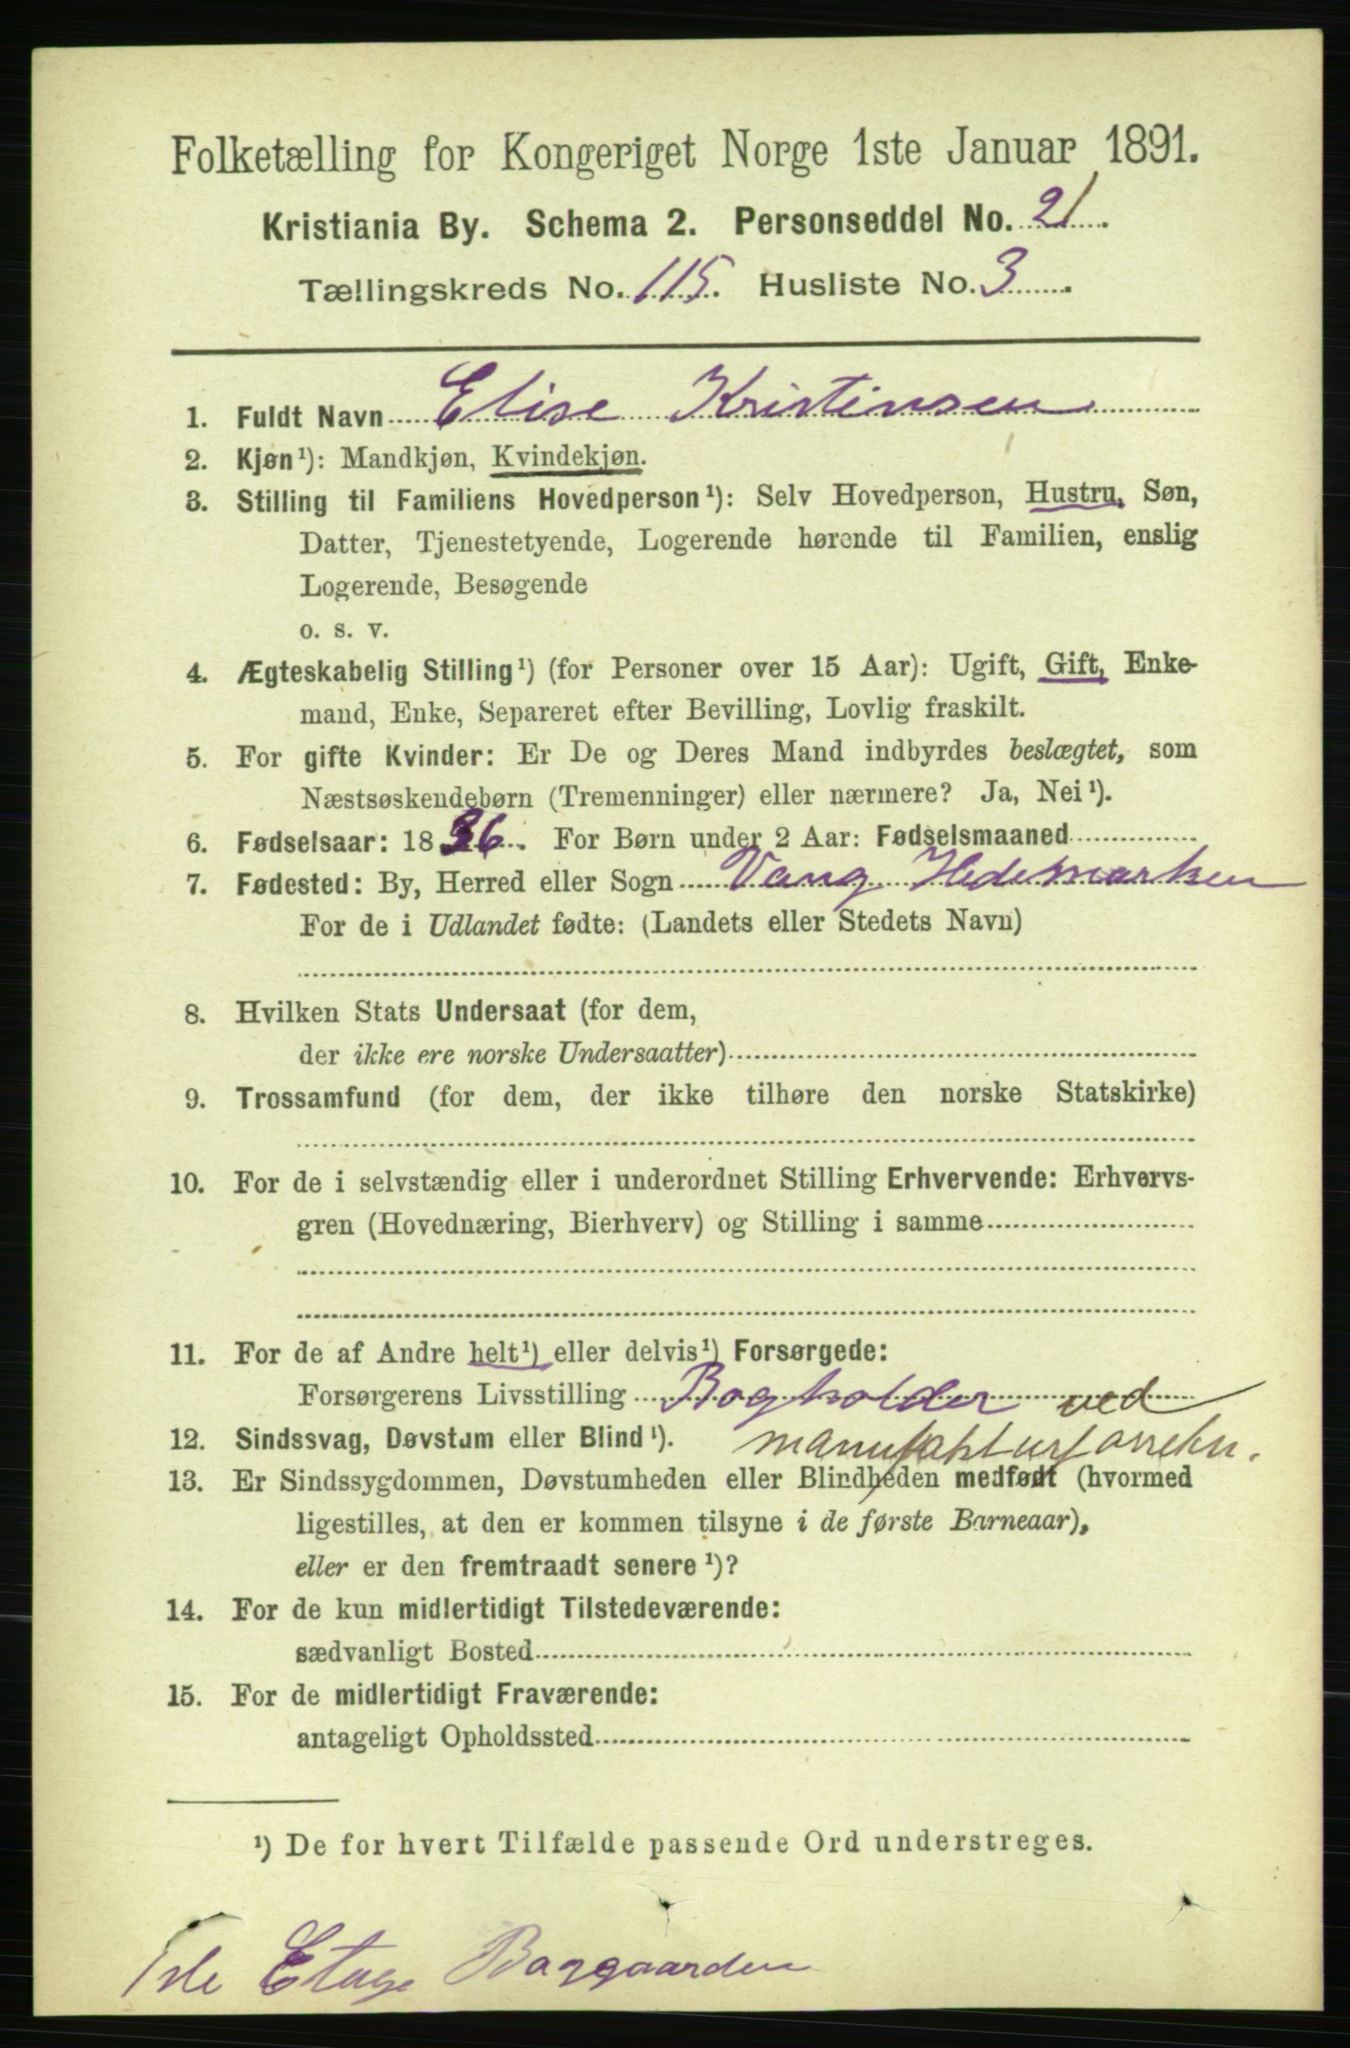 Folketælling for Kongeriget Norge 1ste Januar 1891.
Kristiania By. Schema 2. Personseddel No. 21.
Tællingskreds No. 115. Husliste No. 3.
1. Fuldt Navn Elise Kristinsen
2. Kjøn¹): Mandkjøn, Kvindekjøn.
3. Stilling til Familiens Hovedperson¹): Selv Hovedperson, Hustru, Søn,
Datter, Tjenestetyende, Logerende hørende til Familien, enslig
Logerende, Besøgende
o. s. v.
4. Ægteskabelig Stilling¹) (for Personer over 15 Aar): Ugift, Gift, Enke-
mand, Enke, Separeret efter Bevilling, Lovlig fraskilt.
5. For gifte Kvinder: Er De og Deres Mand indbyrdes beslægtet, som
Næstsøskendebørn (Tremenninger) eller nærmere? Ja, Nei¹).
6. Fødselsaar: 1836. For Børn under 2 Aar: Fødselsmaaned
7. Fødested: By, Herred eller Sogn Vang Hedemarken
For de i Udlandet fødte: (Landets eller Stedets Navn)
8. Hvilken Stats Undersaat (for dem,
der ikke ere norske Undersaatter)
9. Trossamfund (for dem, der ikke tilhøre den norske Statskirke)
10. For de i selvstændig eller i underordnet Stilling Erhvervende: Erhvervs-
gren (Hovednæring, Bierhverv) og Stilling i samme
11. For de af Andre helt¹) eller delvis¹) Forsørgede:
Forsørgerens Livsstilling Bogholder ved
12. Sindssvag, Døvstum eller Blind¹). manufakturforretn.
13. Er Sindssygdommen, Døvstumheden eller Blindheden medfødt (hvormed
ligestilles, at den er kommen tilsyne i de første Barneaar),
eller er den fremtraadt senere¹)?
14. For de kun midlertidigt Tilstedeværende:
sædvanligt Bosted
15. For de midlertidigt Fraværende:
antageligt Opholdssted
¹) De for hvert Tilfælde passende Ord understreges.
1ste Etage Baggaarden